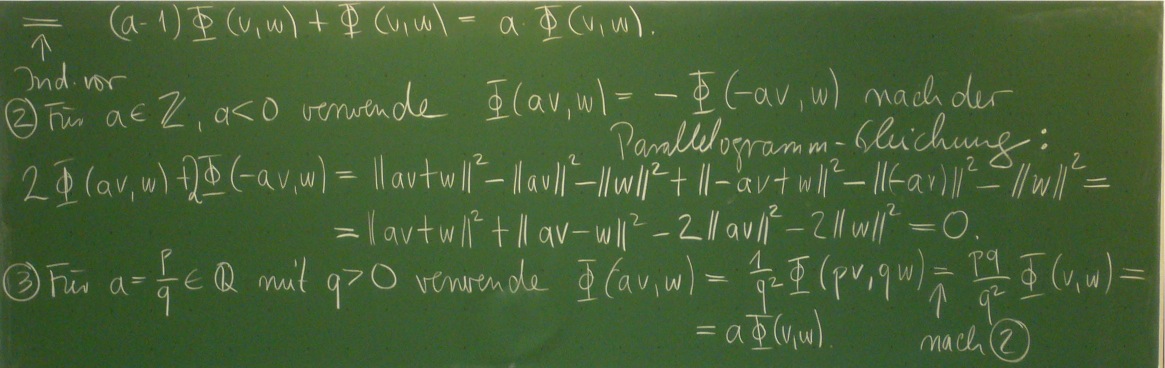 = (a-1) Φ (v,w) + Φ (v,w) = a · Φ (v,w).
↑
Ind. vor
② Für a ∈ ℤ, a<0 verwende Φ(av,w) = - Φ(-av,w) nach der
Parallelogramm-Gleichung:
2Φ(av,w) + 2Φ(-av,w) = ||av+w||² - ||av||² - ||w||² + ||-av+w||² - ||(-av)||² - ||w||² =
= ||av+w||² + ||av-w||² - 2||av||² - 2||w||² = 0.
③ Für a = p/q ∈ ℚ mit q>0 verwende Φ(av,w) = 1/q² Φ(pv,qw) = pq/q² Φ(v,w) =
↑
= aΦ(v,w). nach ②